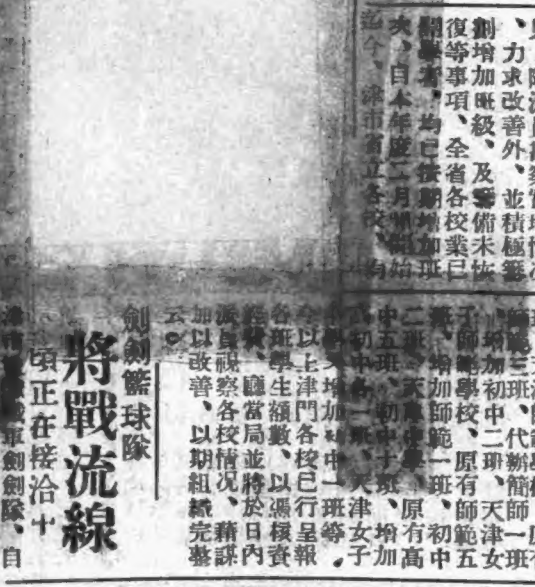 、力求改善外、並積極籌
劃增加班級、及籌備未恢
復等事項、全省各校業已
開學者、均已按期增加班
次、自本年度二月開始
迄今、津市省立各校、均
師範三班、代辦簡師一班
、增加初中二班、天津女
子師範學校、原有師範五
班、增加師範一班、初中
二班、天津中學、原有高
中五班、初中十班、增加
初中各一班、天津女子
中學又增加初中一班等、
今以上津門各校已行呈報
各班學生額數、以憑核資
經費、廳當局並將於日內
派員視察各校情况、藉謀
加以改善、以期組織完整
云。
劍劍籃球隊
將戰流線
頃正在接洽中
劍劍隊、自